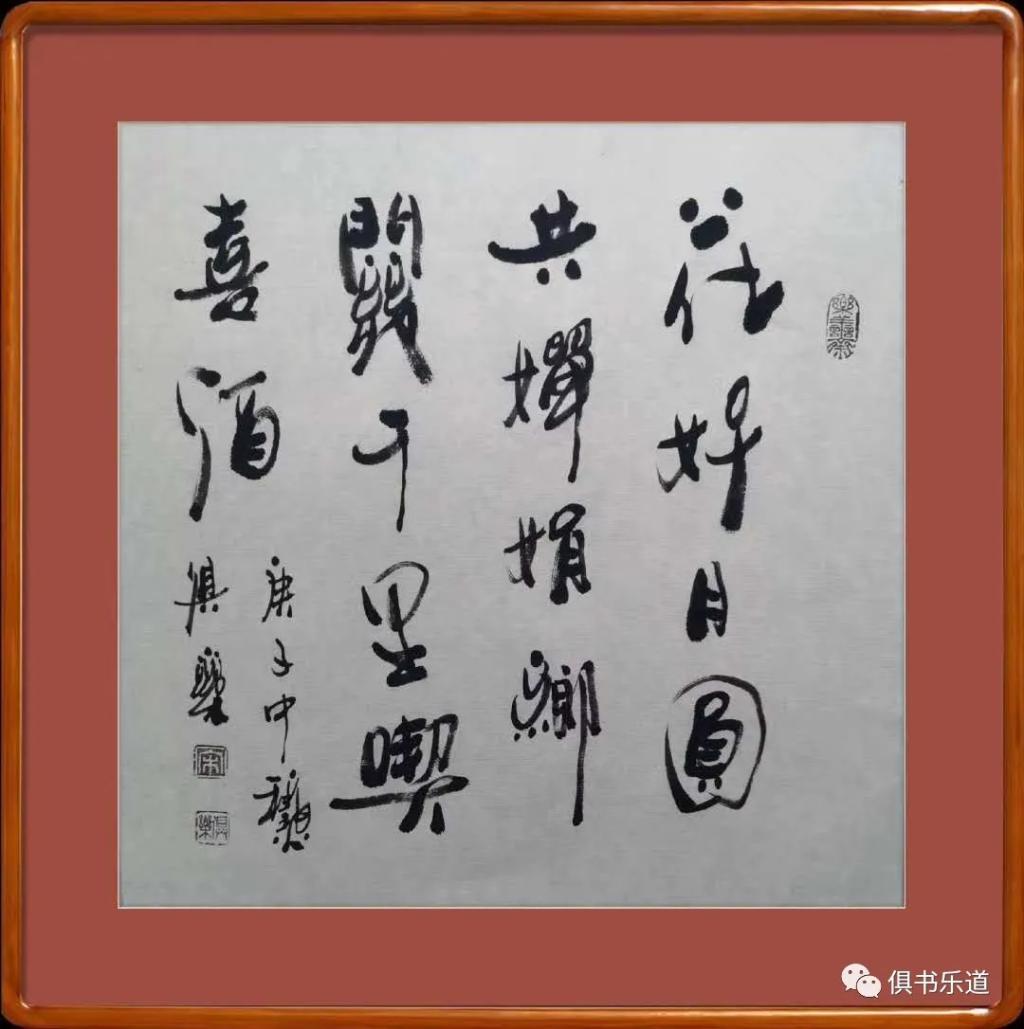 花好月圓
共嬋娟鄉
關千里喫
喜酒
庚子中龝
俱樂
宋
俱樂
俱书乐道